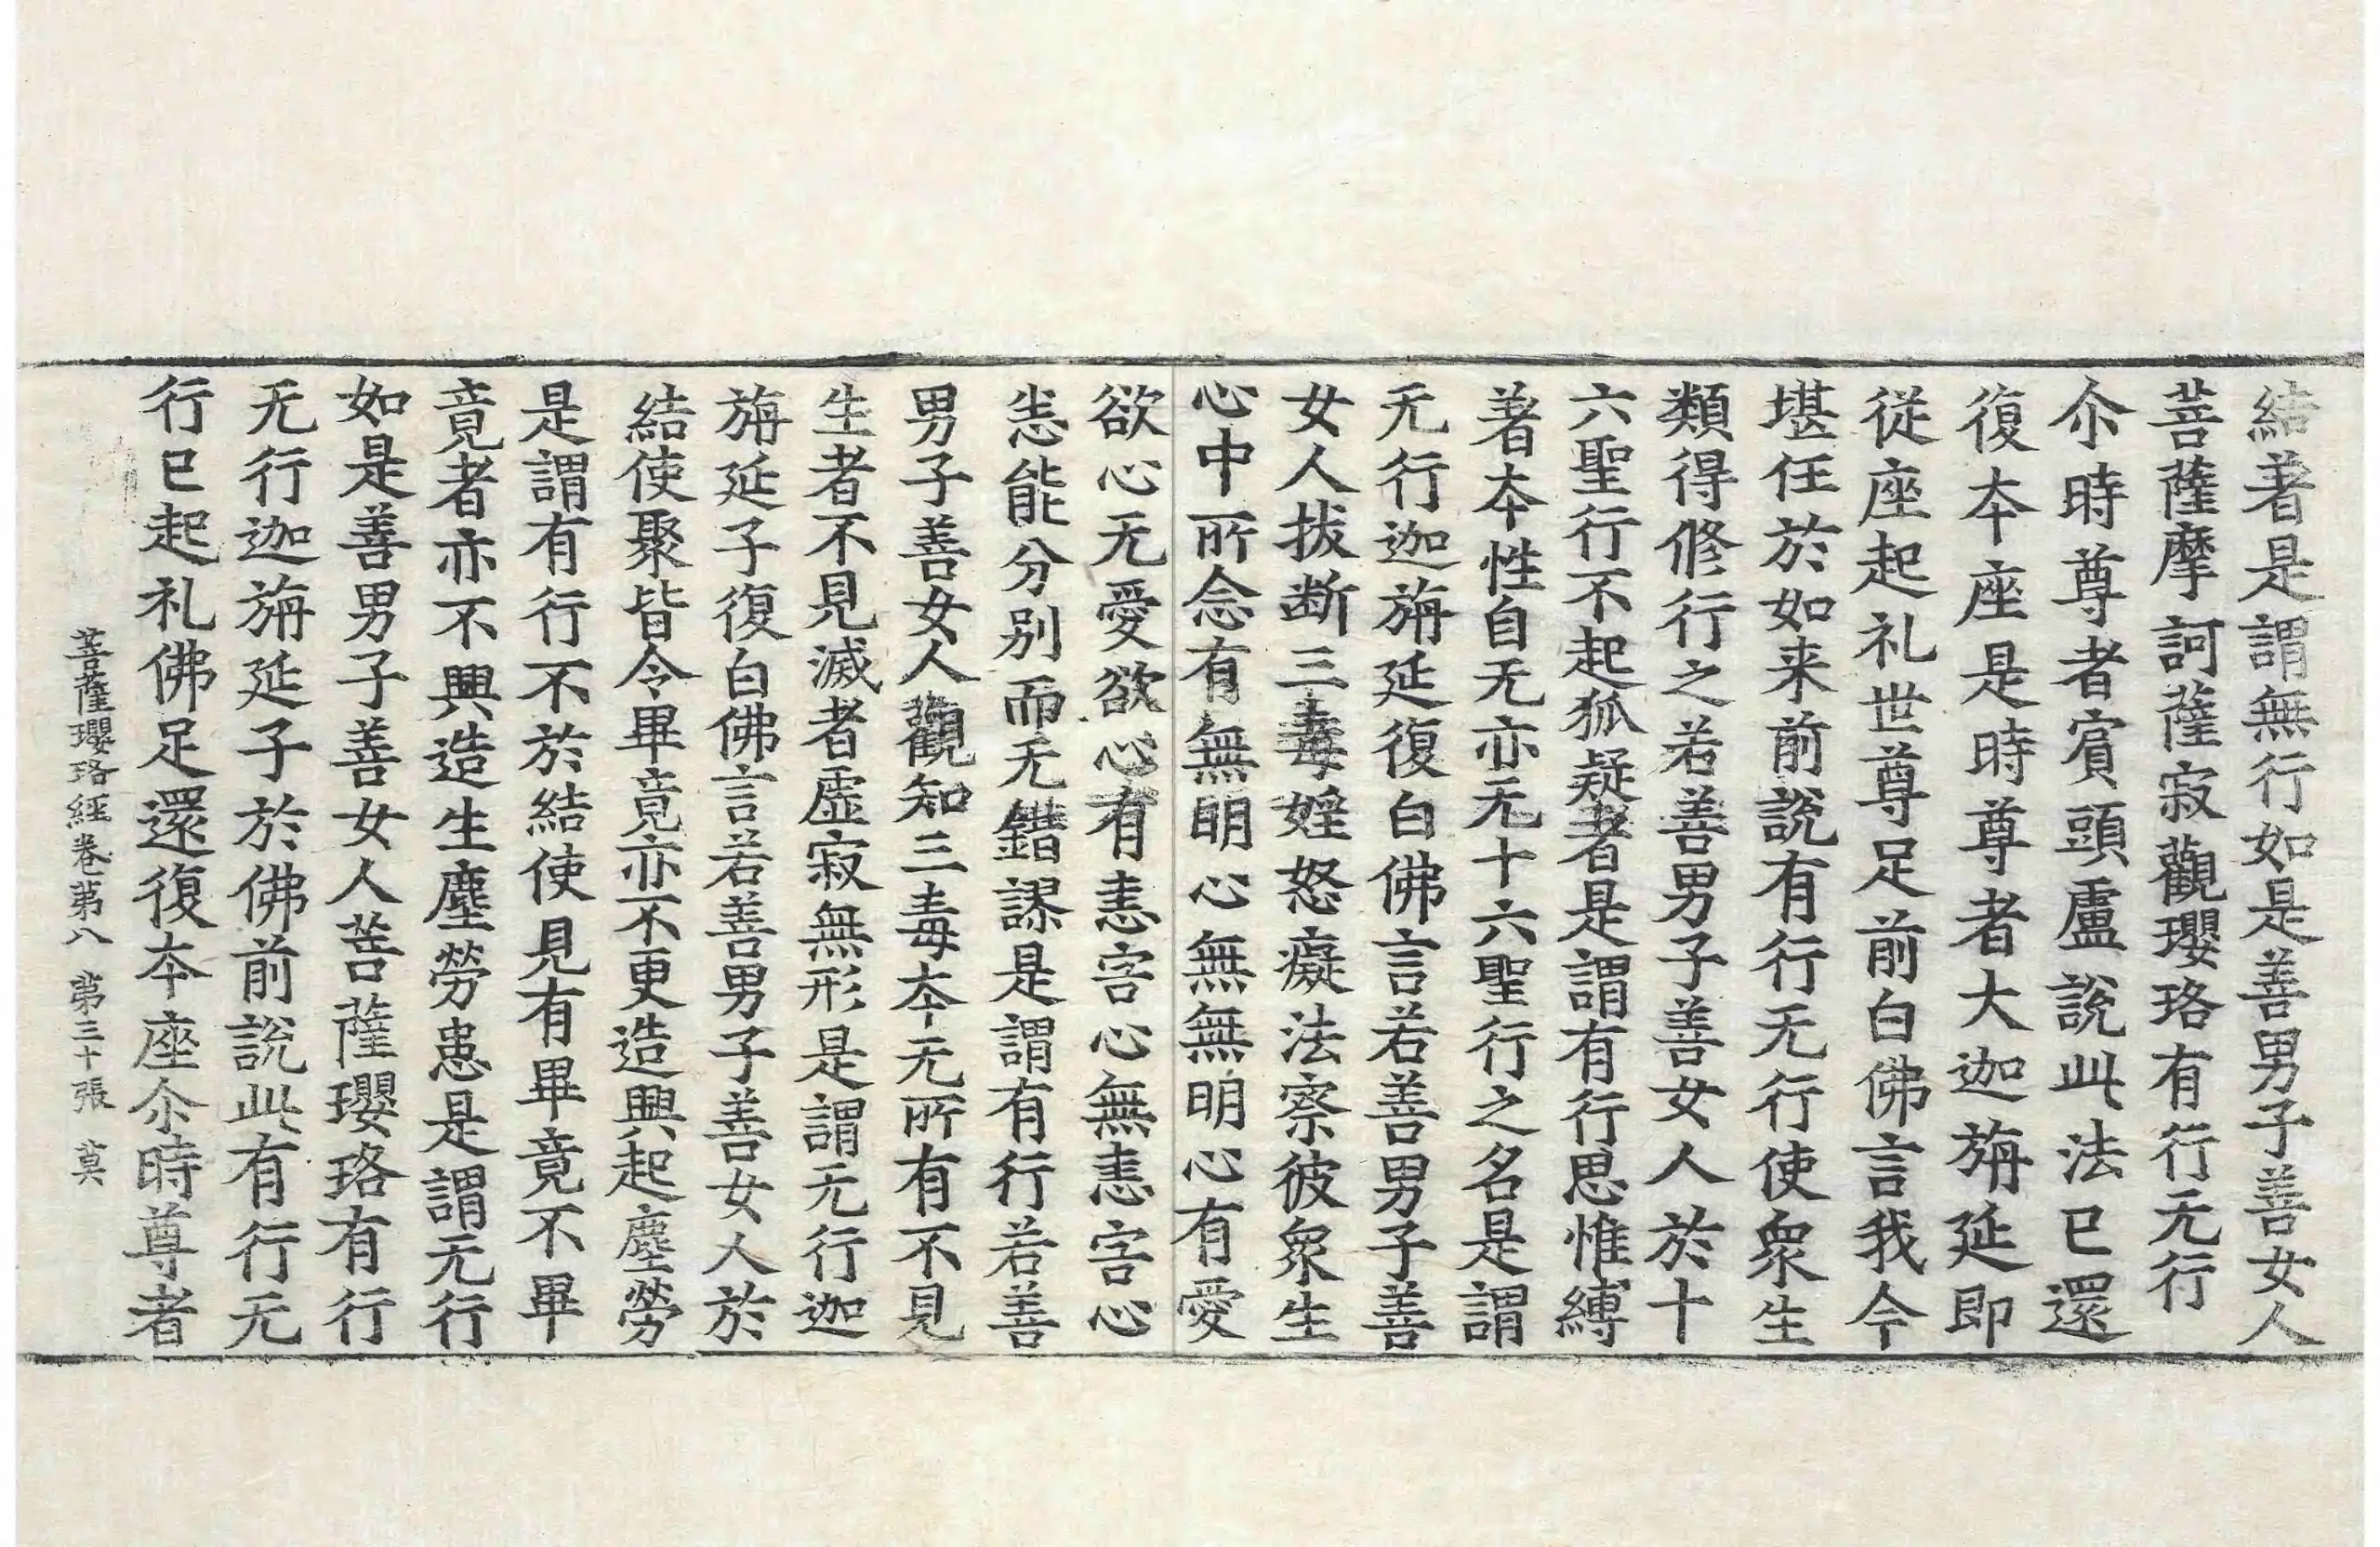 結著是謂無行如是善男子善女人
菩薩摩訶薩寂觀瓔珞有行无行
尒時尊者賔頭盧說此法已還
復本座是時尊者大迦旃延即
從座起礼世尊足前白佛言我今
堪任於如来前說有行无行使衆生
類得修行之若善男子善女人於十
六聖行不起狐疑者是謂有行思惟縛
著本性自无亦无十六聖行之名是謂
无行迦旃延復白佛言若善男子善
女人拔断三毒婬怒癡法察彼衆生
心中所念有無明心無無明心有愛
欲心无愛欲心有恚害心無恚害心
恙能分别而无錯謬是謂有行若善
男子善女人觀知三毒本无所有不見
生者不見滅者虛寂無形是謂无行迦
旃延子復白佛言若善男子善女人於
結使聚皆令畢竟亦不更造興起塵勞
是謂有行不於結使見有畢竟不畢
竟者亦不興造生塵勞患是謂无行
如是善男子善女人菩薩瓔珞有行
无行迦旃延子於佛前說此有行无
行已起礼佛足還復本座尒時尊者
菩薩瓔珞經卷第八 第三十張 莫